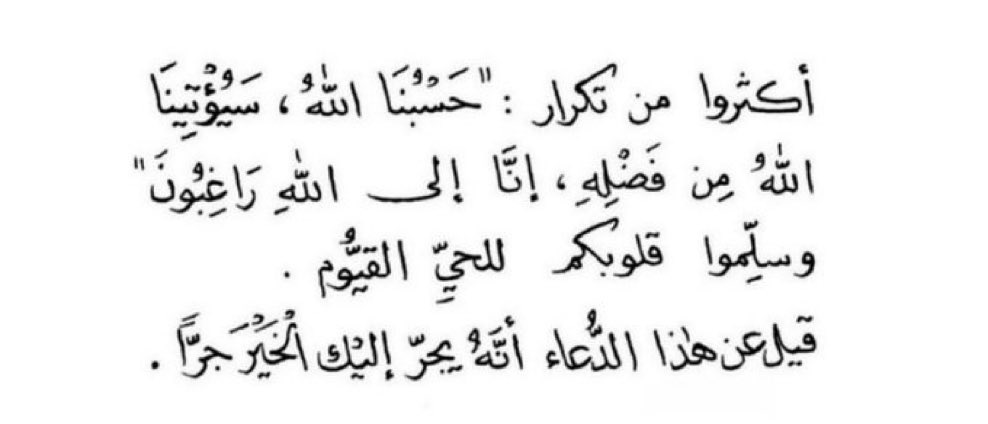 أكثروا من تكرار : "حَسْبُنَا اللهُ ، سَيُؤْتِينَا
اللهُ مِن فَضْلِهِ ، إنَّا إلى اللهِ رَاغِبُونَ"
وسلِّموا قلوبكم للحيِّ القيُّوم .
قيل عن هٰذا الدُّعاء أنَّهُ يجرّ إليْك الْخَيْرَ جرًّا .